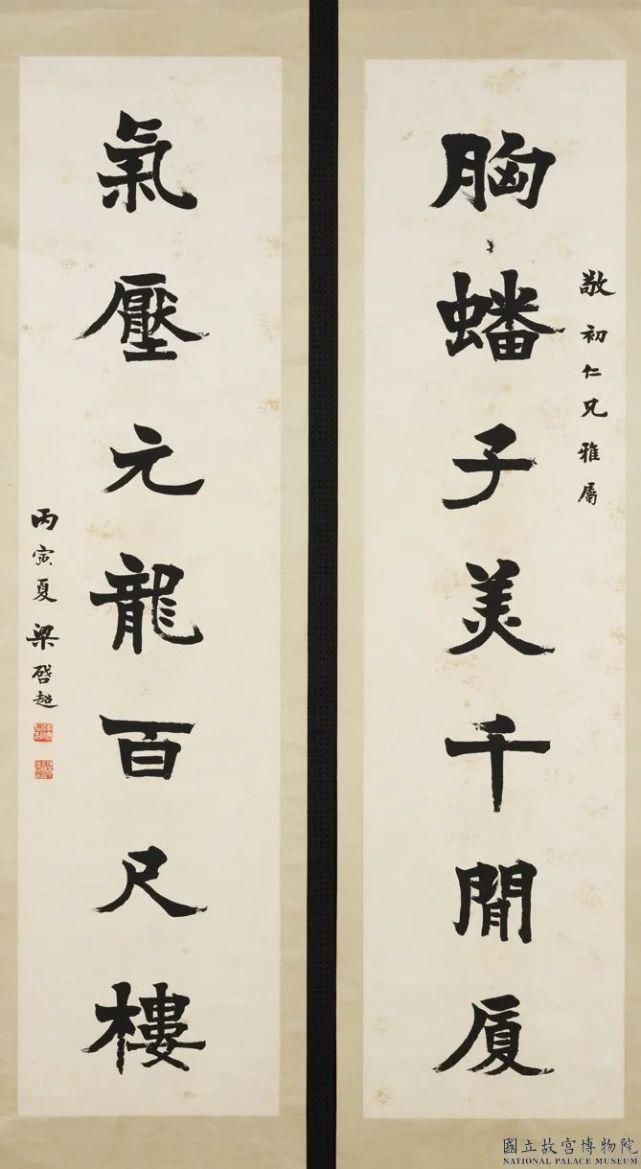 敬初仁兄雅屬
胸蟠子美千間厦
氣壓元龍百尺樓
丙寅夏 梁啓超
國立故宮博物院
NATIONAL PALACE MUSEUM